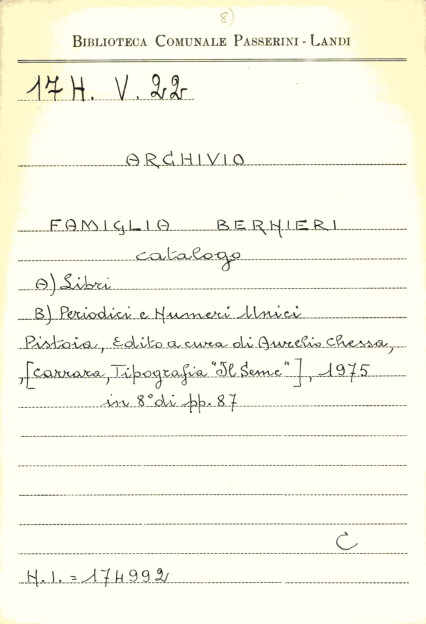 8)
BIBLIOTECA COMUNALE PASSERINI - LANDI
17 H. V. 22
ARCHIVIO
FAMIGLIA BERNIERI
catalogo
A) Libri
B) Periodici e Numeri Unici
Pistoia, Edito a cura di Aurelio Chessa,
,[Carrara, Tipografia "Il Seme"], 1975
in 8° di pp. 87
C
N. I. = 174992